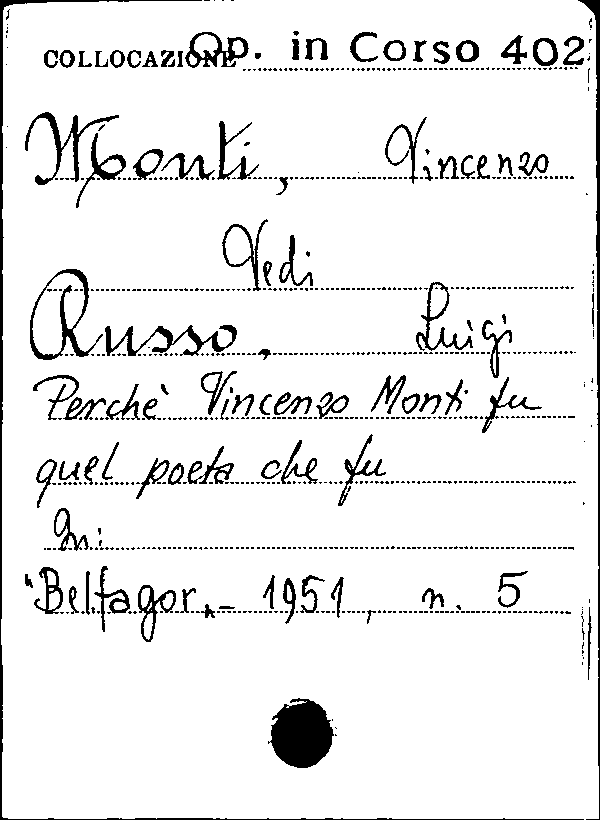 COLLOCAZIONE Op. in Corso 402
Monti, Vincenzo
Vedi
Russo, Luigi
Perchè Vincenzo Monti fu
quel poeta che fu
In:
"Belfagor„ - 1951, n. 5